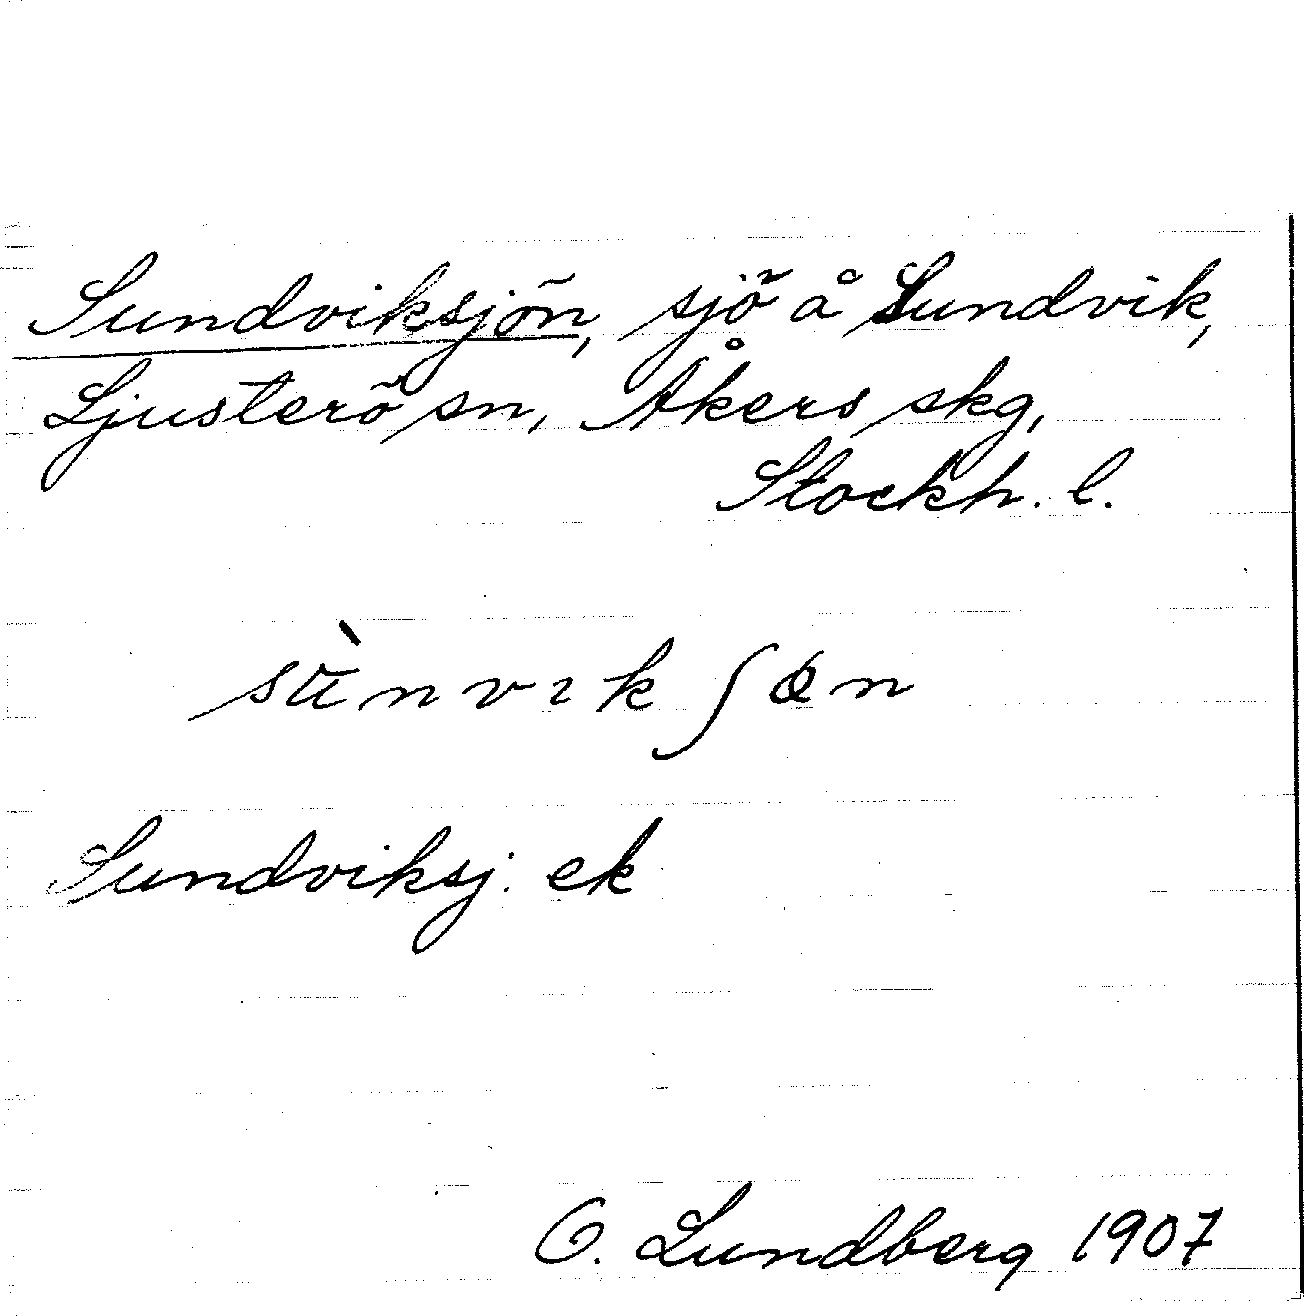 Sundviksjön, sjö å Sundvik,
Ljusterö sn, Åkers skg,
Stockh. l.
sùnvɪkʃøn
Sundviksj. ek
O. Lundberg 1907